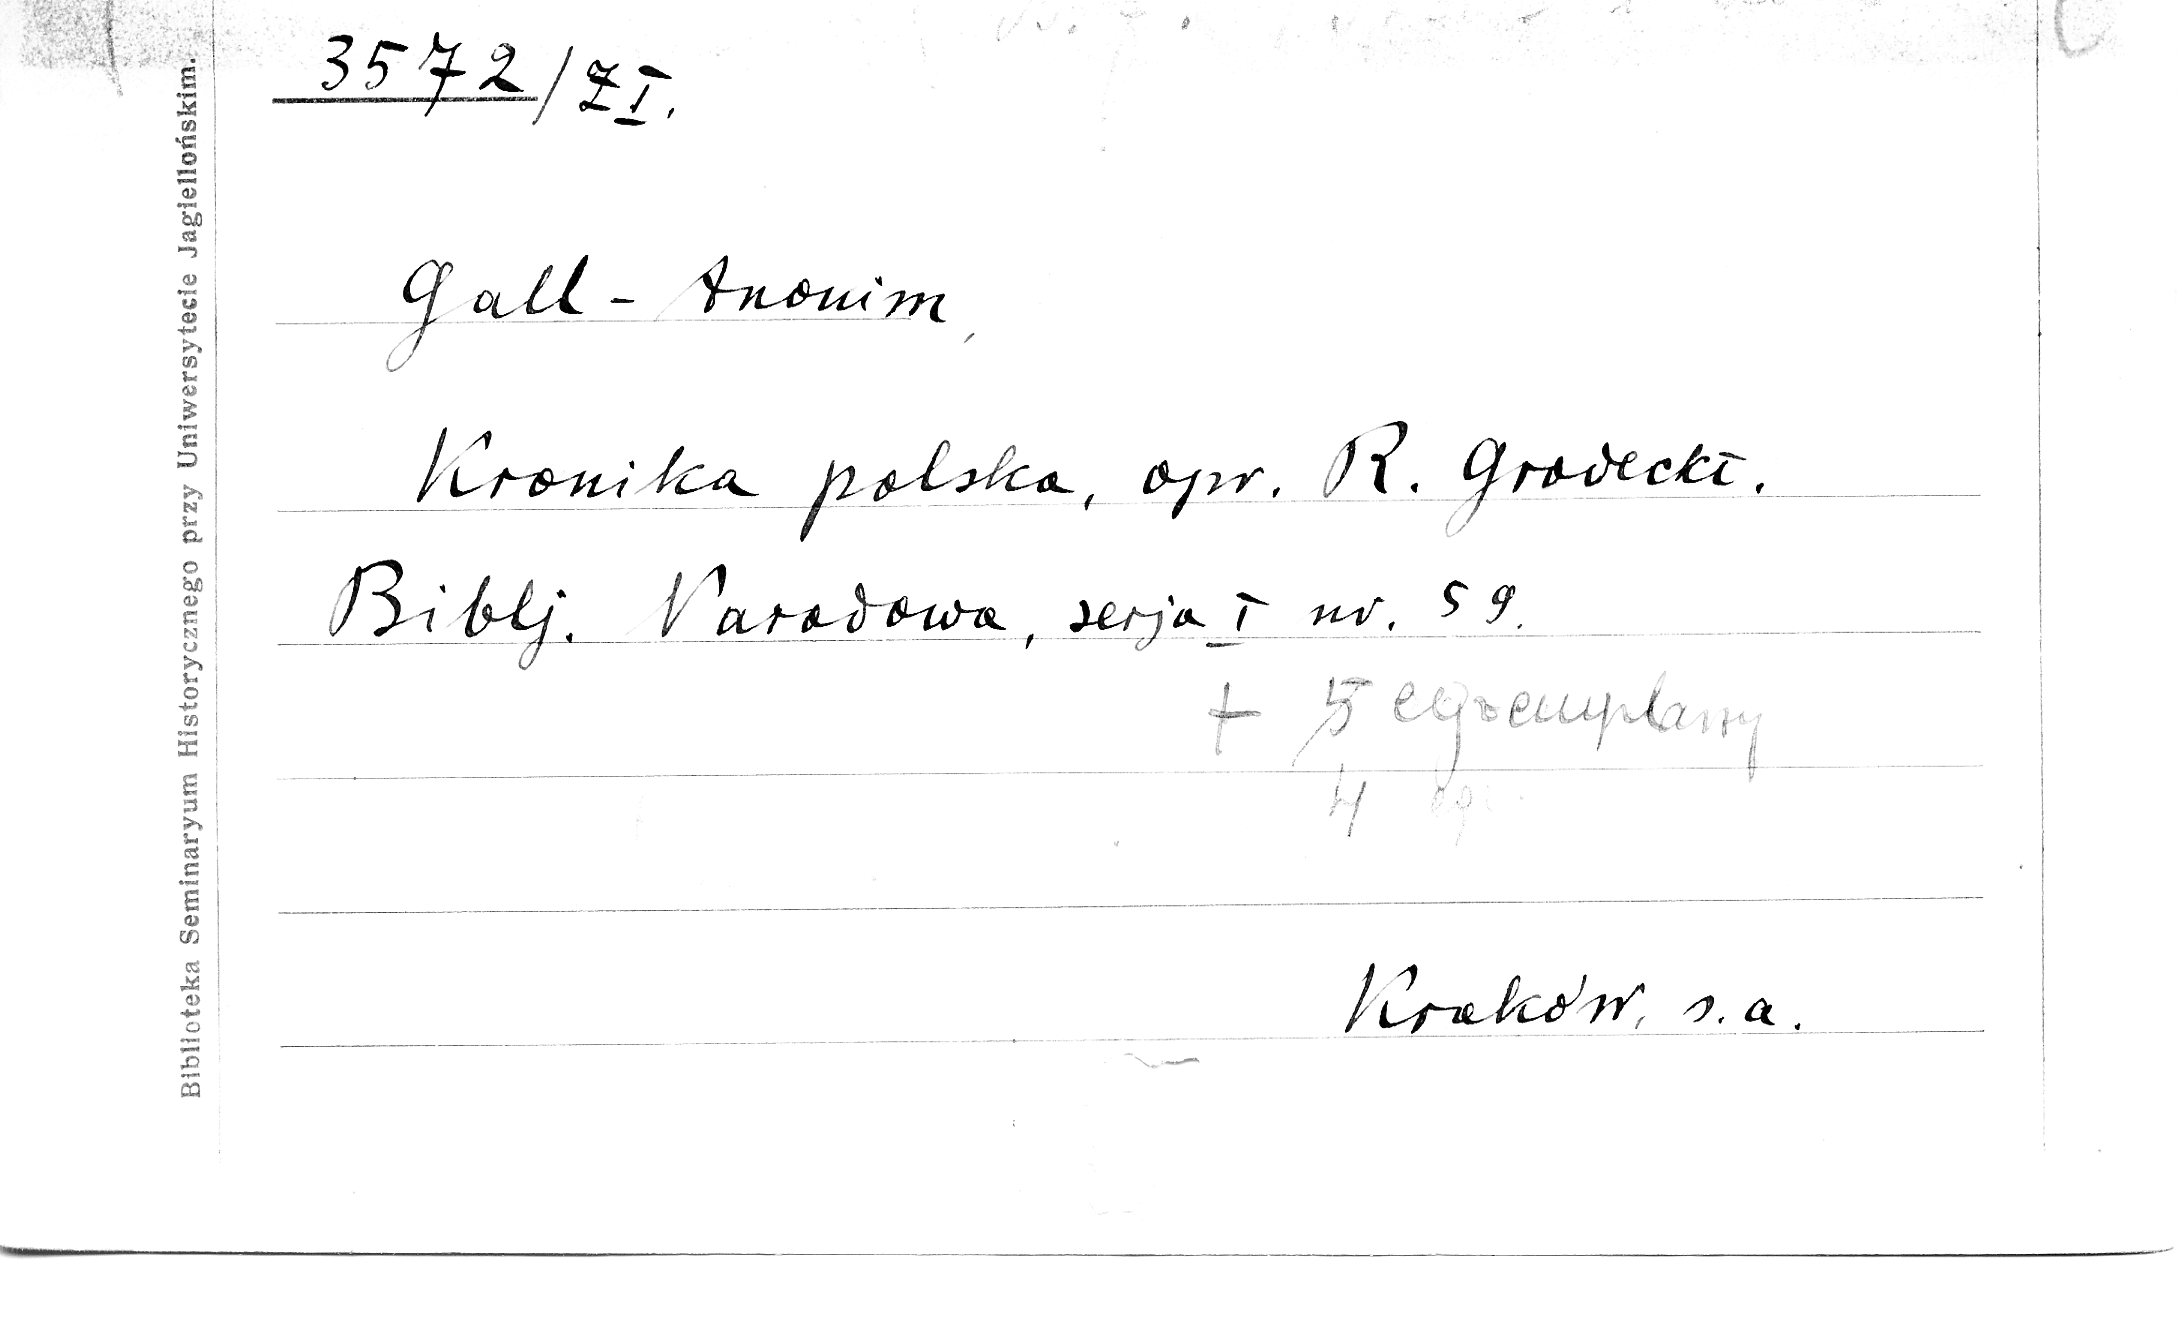 3572/ZI.
Gall - Anonim,
Kronika polska, opr. R. Grodecki.
Biblj. Narodowa, serja I nr. 59.
+ 5 egzemplarzy
4 egz.
Kraków, s. a.
Biblioteka Seminaryum Historycznego przy Uniwersytecie Jagiellońskim.